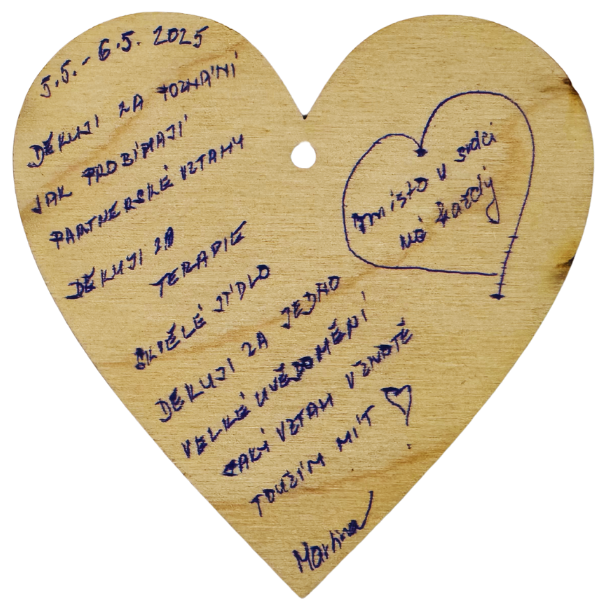 5.5. - 6.5. 2025
DĚKUJI ZA POZNÁNÍ
JAK PROBÍMAJÍ
PARTNERSKÉ VZTAHY
DĚKUJI ZA
TERAPIE
SKVĚLÉ JÍDLO
DĚKUJI ZA JEDNO
VELKÉ UVĚDOMĚNÍ
JAKÝ VZTAH V ŽIVOTĚ
TOUŽÍM MÍT ♡
Martina
místo v srdci
má každý